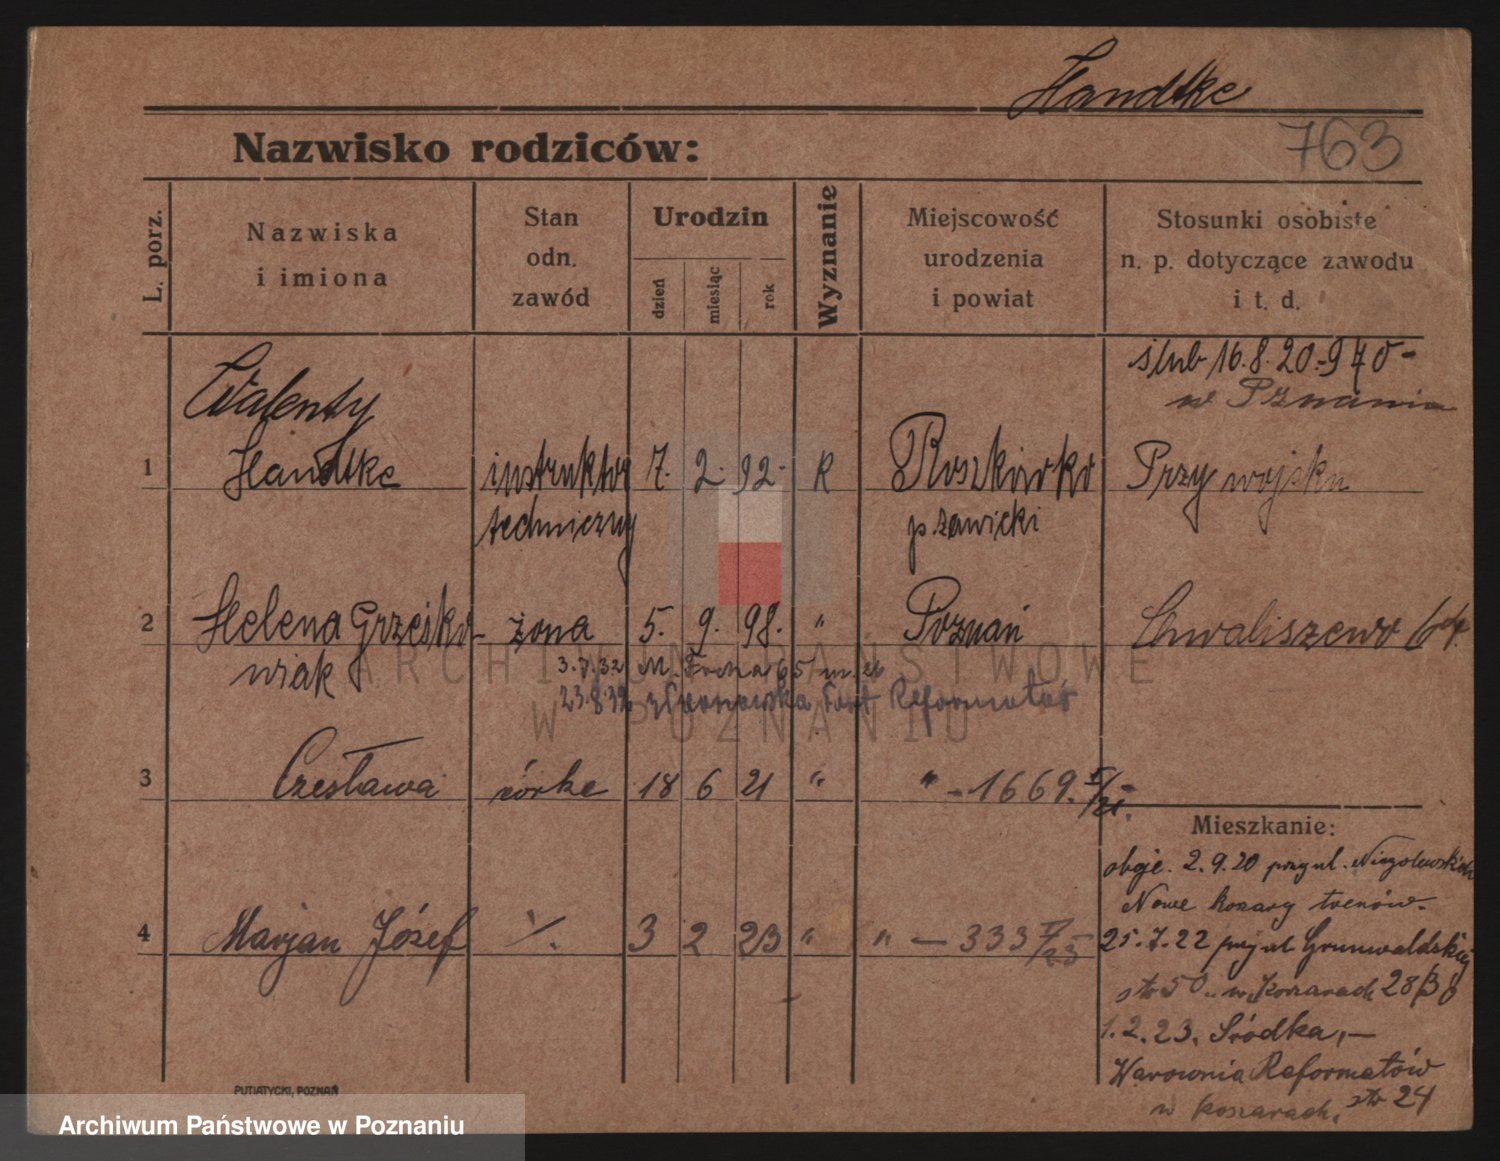 Handtke
763
Nazwisko rodziców:
L. porz.
Nazwiska
i imiona
Stan
odn.
zawód
Urodzin
dzień
miesiąc
rok
Wyznanie
Miejscowość
urodzenia
i powiat
Stosunki osobiste
n. p. dotyczące zawodu
i t. d.
ślub 16.8.20 - 970 -
w Poznaniu
Walenty
1 Handtke instruktor 7. 2. 92. R Roszkówko Przy wojsku
techniczny p żawicki
2 Helena Grześko- żona 5. 9. 98. " Poznań Chwaliszewo
wiak
3.7.32 M. Focha 65 m.
23.8.32 Fort Reformatów
3 Czesława córka 18 6 21 " " - 1669.
4 Marjan Józef 3 2 23 " " - 333
Mieszkanie:
obje. 2.9.20 przy ul. Niegolewskich
Nowe koszary trenów.
25.7.22 przy ul Grunwaldzkiej
str 50 w koszarach
1.2.23. Śródka, -
Warownia Reformatów
w koszarach, str 24
PUTIATYCKI, POZNAŃ
ARCHIWUM PAŃSTWOWE
W POZNANIU
Archiwum Państwowe w Poznaniu